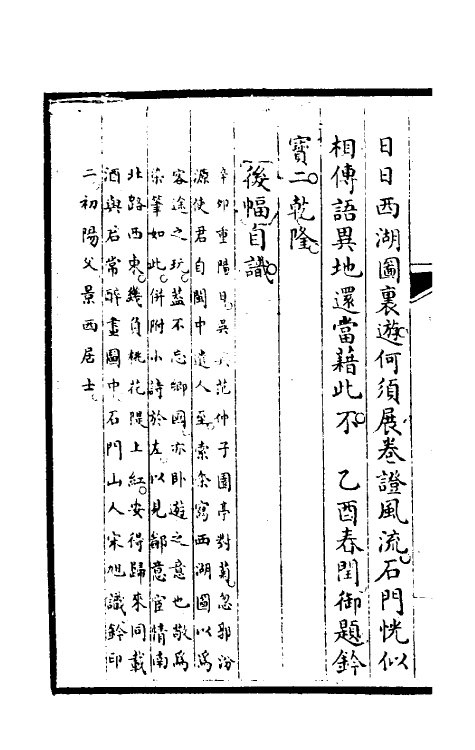 日日西湖圖裏遊何須展卷證風流石門恍似
相傳語異地還當藉此不　乙酉春閏御題鈐
寶二乾隆
後幅自識
辛卯重陽日吳 范仲子園亭對菊忽鄒汾
源使君自閩中遣人至索余寫西湖圖以為
客途之玩葢不忘鄉國亦卧遊之意也敬為
染筆如此併附小詩於左以見鄙意宦情南
北路西東幾負桃花隄上紅安得歸來同載
酒與君常醉畫圖中石門山人宋旭識鈐印
二初陽父景西居士